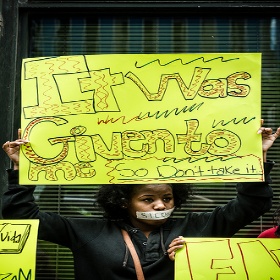 It Was
Given to
me So Don't take it
SILE
Vida